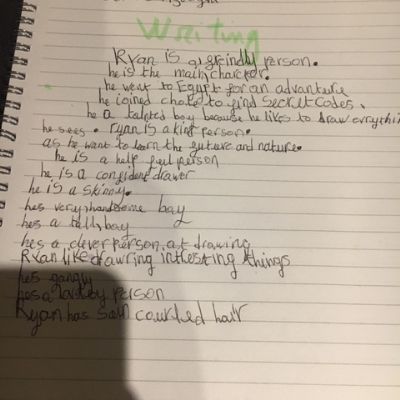 Writing
Ryan is a greindly person.
he is the main charctor.
he went to Egypt for an advanture
he joined chole to find secret codes.
he a talnted boy because he likes to draw evrything
he sees. ryan is a kind person.
as he want to learn the guture and nature.
he is a help feel person
he is a confident drawer
he is a skinny.
hes very handsome boy
hes a tall boy
hes a clever person at drawing
Ryan like drawring intresting things
hes gangly
hes a person
Ryan has hair